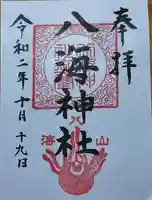 奉拝
八海神社
令和二年十月十九日
八
海山